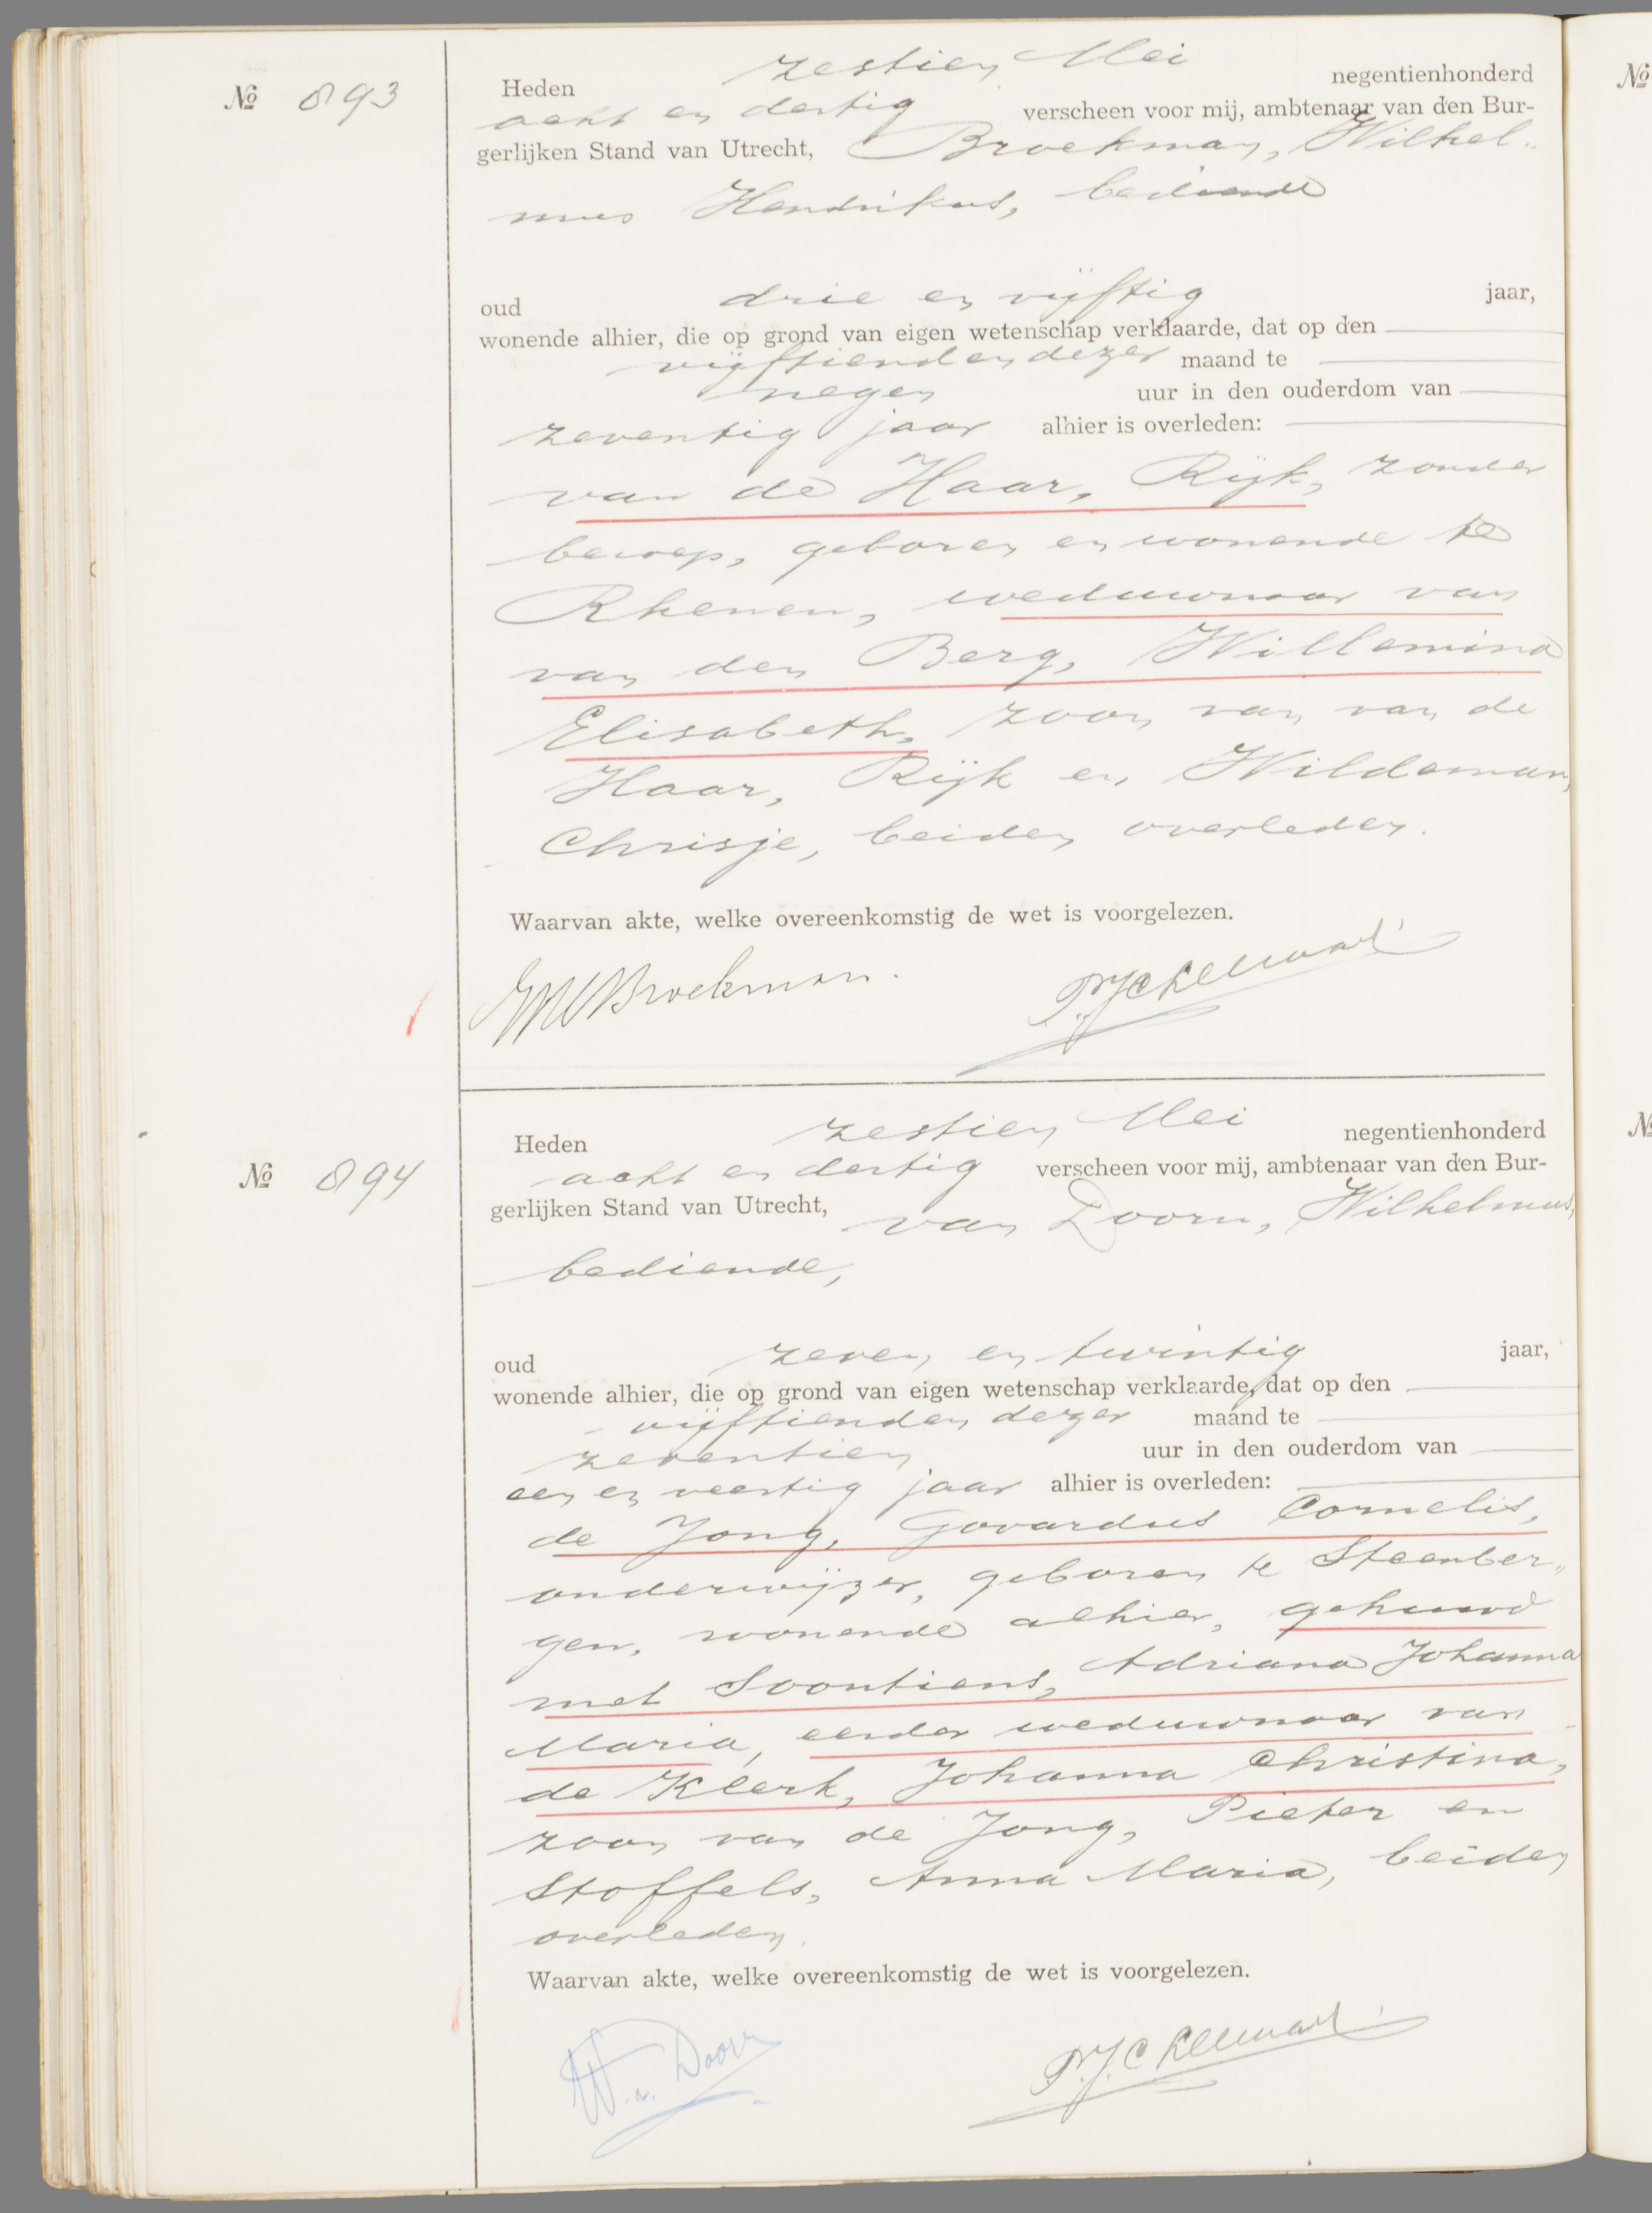 № 893
Heden zestien Mei negentienhonderd
acht en dertig verscheen voor mij, ambtenaar van den Bur-
gerlijken Stand van Utrecht, Broekman, Wilhel-
mus Hendrikus, bediende
oud drie en vijftig jaar,
wonende alhier, die op grond van eigen wetenschap verklaarde, dat op den
vijftienden dezer maand te
negen uur in den ouderdom van
zeventig jaar alhier is overleden:
van de Haar, Rijk, zonder
beroep, geboren en wonende te
Rhenen, weduwnaar van
van den Berg, Willemina
Elisabeth, zoon van van de
Haar, Rijk en Wildeman,
Chrisje, beiden overleden.
Waarvan akte, welke overeenkomstig de wet is voorgelezen.
Broekman.
№ 894
Heden zestien Mei negentienhonderd
acht en dertig verscheen voor mij, ambtenaar van den Bur-
gerlijken Stand van Utrecht, van Doorn, Wilhelmus,
bediende,
oud zeven en twintig jaar,
wonende alhier, die op grond van eigen wetenschap verklaarde, dat op den
vijftienden dezer maand te
zeventien uur in den ouderdom van
een en veertig jaar alhier is overleden:
de Jong, Govardus Cornelis,
onderwijzer, geboren te Steenber-
gen, wonende alhier, gehuwd
met Soontiens, Adriana Johanna
Maria, eerder weduwnaar van
de Klerk, Johanna Christina,
zoon van de Jong, Pieter en
Stoffels, Anna Maria, beiden
overleden.
Waarvan akte, welke overeenkomstig de wet is voorgelezen.
W. v. Doorn
№